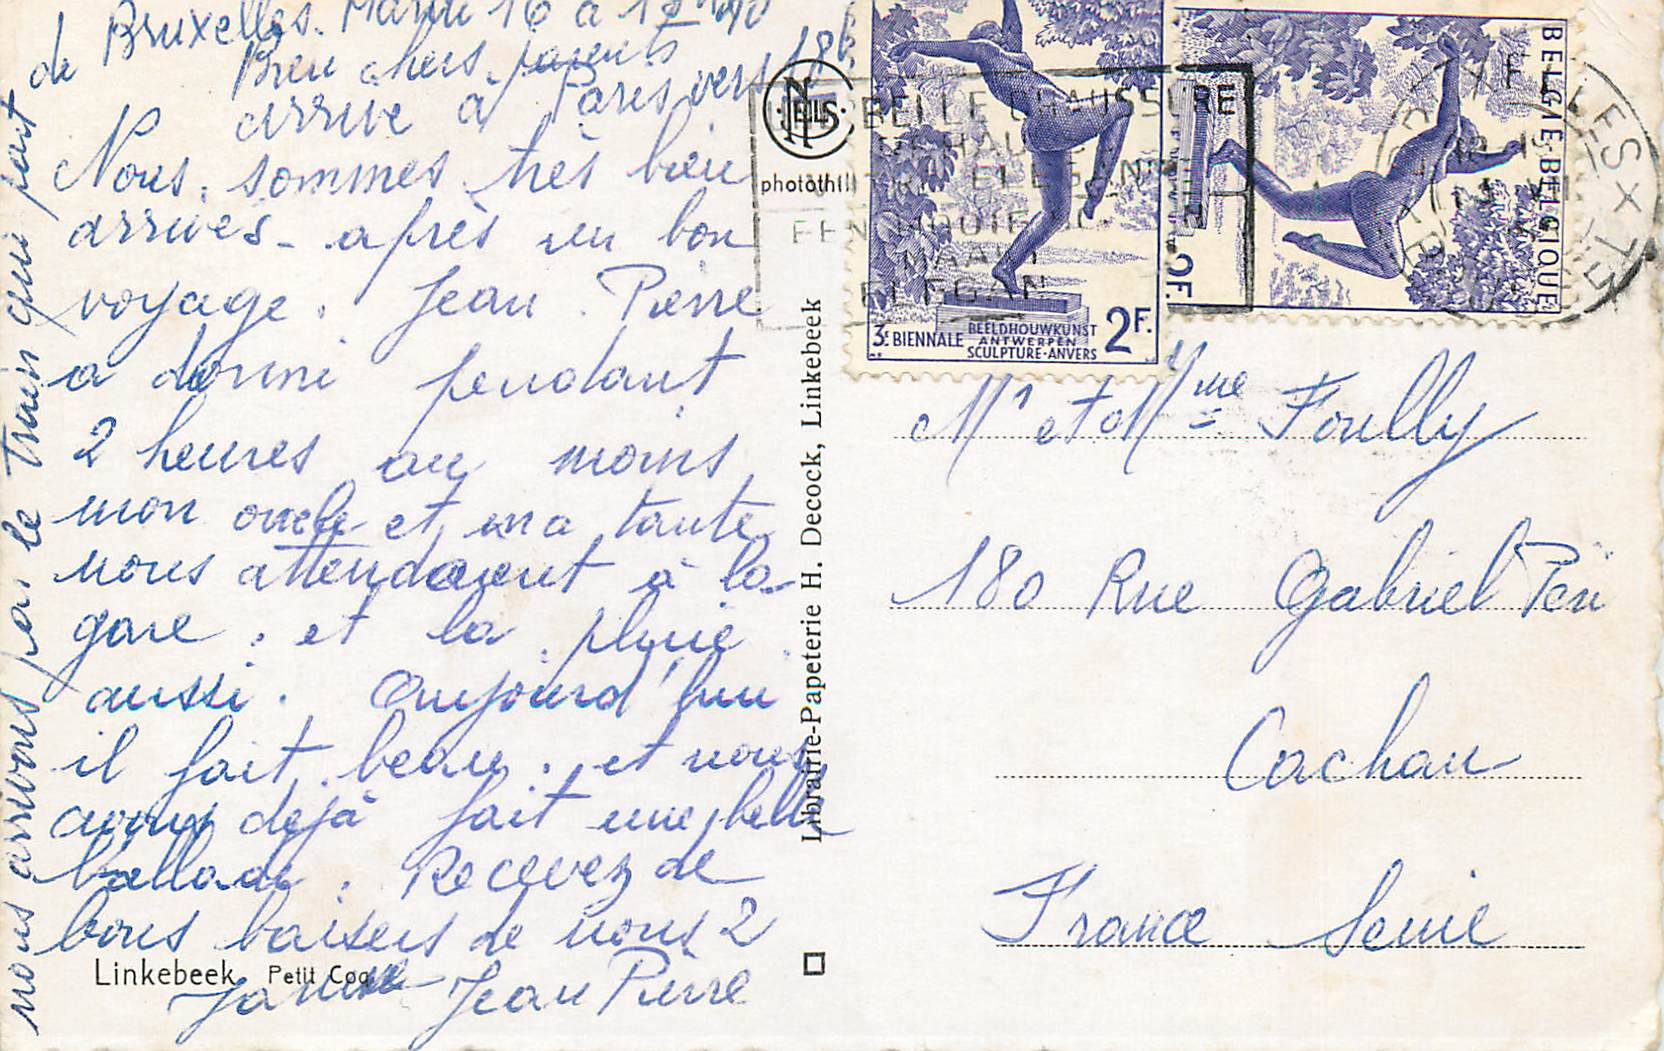 de Bruxelles. Mardi 16 à 12h40
Bien chers parents
arrive à Paris vers 18h
Nous sommes très bien
arrivés - après un bon
voyage. Jean Pierre
a dormi pendant
2 heures au moins
mon oncle et ma tante
nous attendaient à la
gare : et la pluie
aussi. Aujourd'hui
il fait beau. et nous
avons déjà fait une belle
ballade. Recevez de
bons baisers de nous 2
Jean Pierre
nous arrivons par le train qui part
Linkebeek Petit Coq
NELS
photothill
Librairie-Papeterie H. Decock, Linkebeek
BELLE CHAUSSURE
ELEGAN
3e BIENNALE
BEELDHOUWKUNST
ANTWERPEN
SCULPTURE-ANVERS
2F.
BELGIE-BELGIQUE
2F.
Mr et Mme Foully
180 Rue Gabriel Péri
Cachan
France Seine